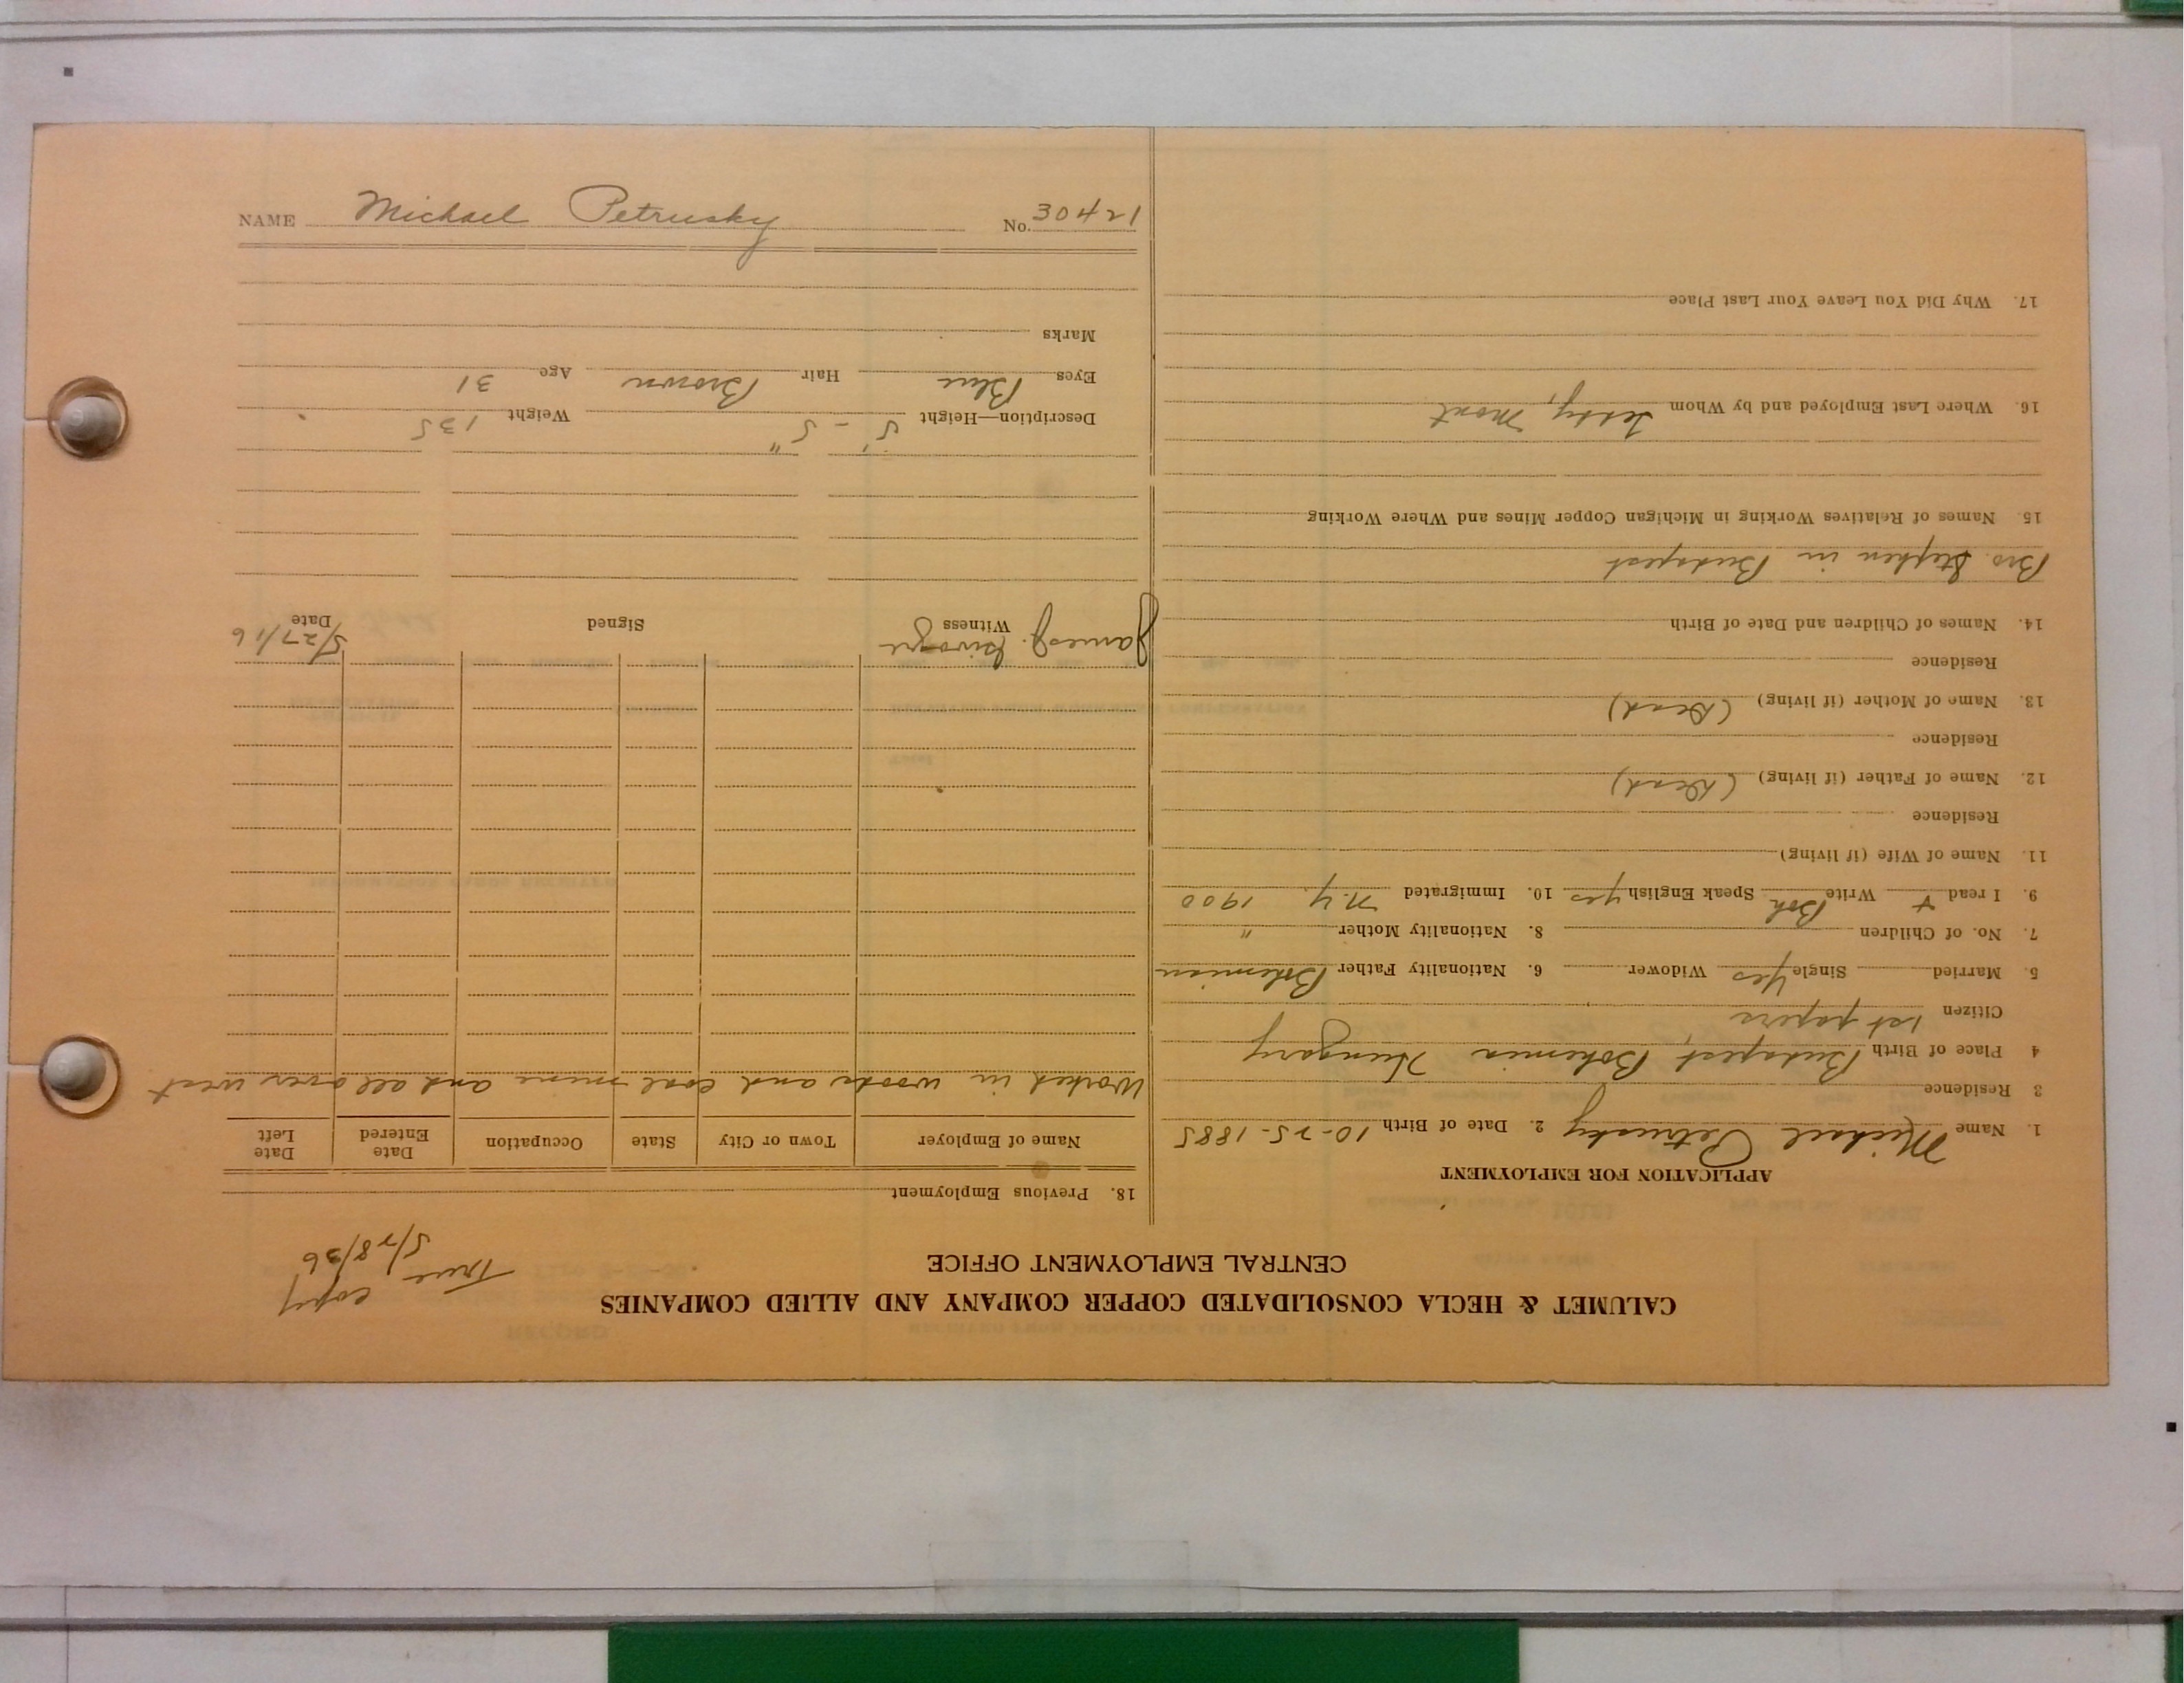 CALUMET & HECLA CONSOLIDATED COPPER COMPANY AND ALLIED COMPANIES
CENTRAL EMPLOYMENT OFFICE
True copy
5/28/36
APPLICATION FOR EMPLOYMENT
1. Name Michael Petrusky 2. Date of Birth 10-25-1885
3 Residence
4 Place of Birth Budapest, Bohemia Hungary
Citizen 1st papers
5. Married Single Yes Widower 6. Nationality Father Bohemian
7. No. of Children 8. Nationality Mother "
9. I read + Write Boh Speak English yes 10. Immigrated N.Y. 1900
11. Name of Wife (if living)
Residence
12. Name of Father (if living) (Dead)
Residence
13. Name of Mother (if living) (Dead)
Residence
14. Names of Children and Date of Birth
Bro. Stephen in Budapest
15. Names of Relatives Working in Michigan Copper Mines and Where Working
16. Where Last Employed and by Whom Terry, Mont
17. Why Did You Leave Your Last Place
18. Previous Employment
Name of Employer Town or City State Occupation Date Entered Date Left
Worked in woods and coal mine and all over west
James J. Witness Signed Date 5/27/16
Description—Height 5' - 5" Weight 135
Eyes Blue Hair Brown Age 31
Marks
NAME Michael Petrusky No. 30421